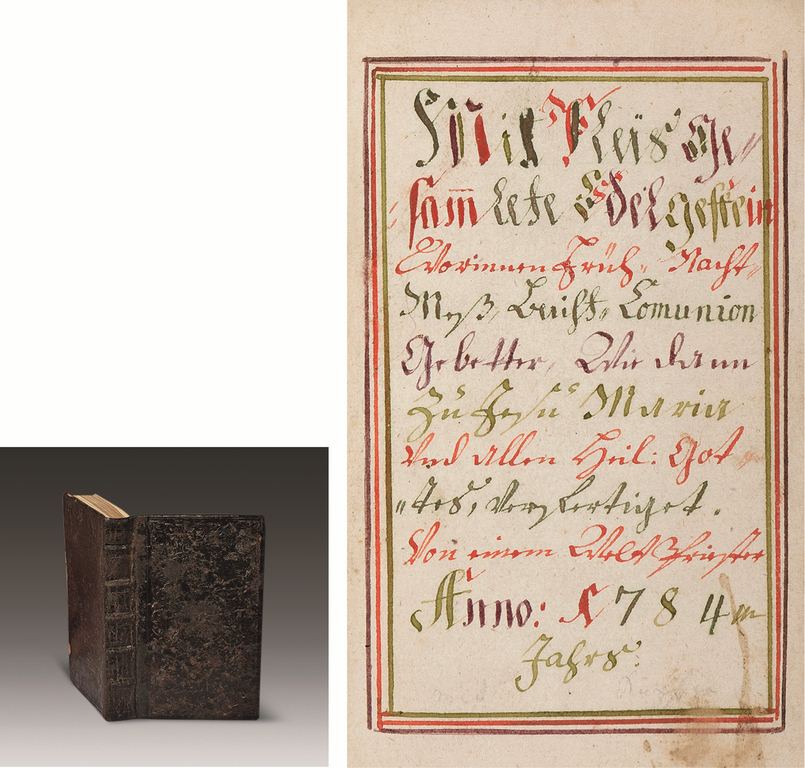 Mit Fleis Ge„
sam̅lete Edelgestein
Worinnen Früh„ Nacht„
Meß, Beicht, Comunion
Gebetter, Wie dann
Zu Jesu Maria
Und Allen Heil: Got
„tes, Verfertiget.
Von einem Welt Priester
Anno: 1784
Jahrs: